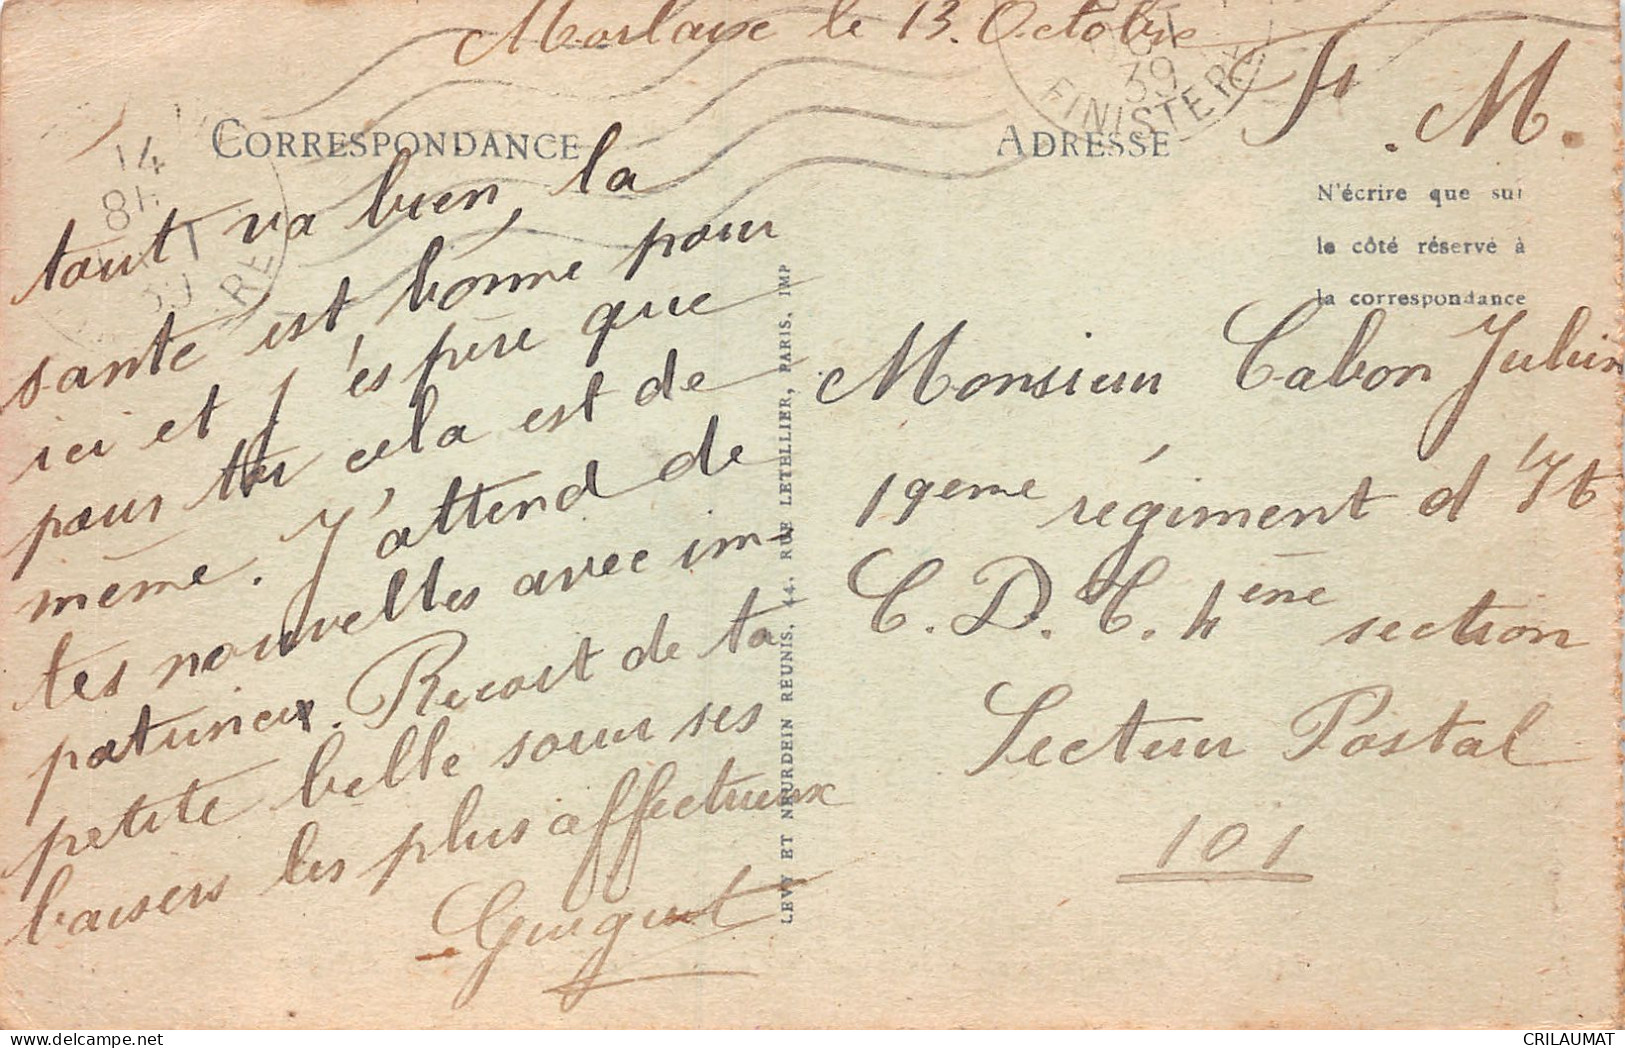 Morlaix le 13. Octobre
F. M.
14
8H
OCT
39
FINISTERE
CORRESPONDANCE
ADRESSE
N'écrire que sur
le côté réservé à
la correspondance
tout va bien, la
santé est bonne pour
ici et j'espère que
pour toi cela est de
même. J'attend de
tes nouvelles avec im-
patience. Recoit de ta
petite belle sœur ses
baisers les plus affectueux
LEVY ET NEURDEIN REUNIS, 44, RUE LETELLIER, PARIS, IMP
Monsieur Cabon Julien
19eme régiment d'It
C. D. C. 4ème section
Secteur Postal
101
CRILAUMAT